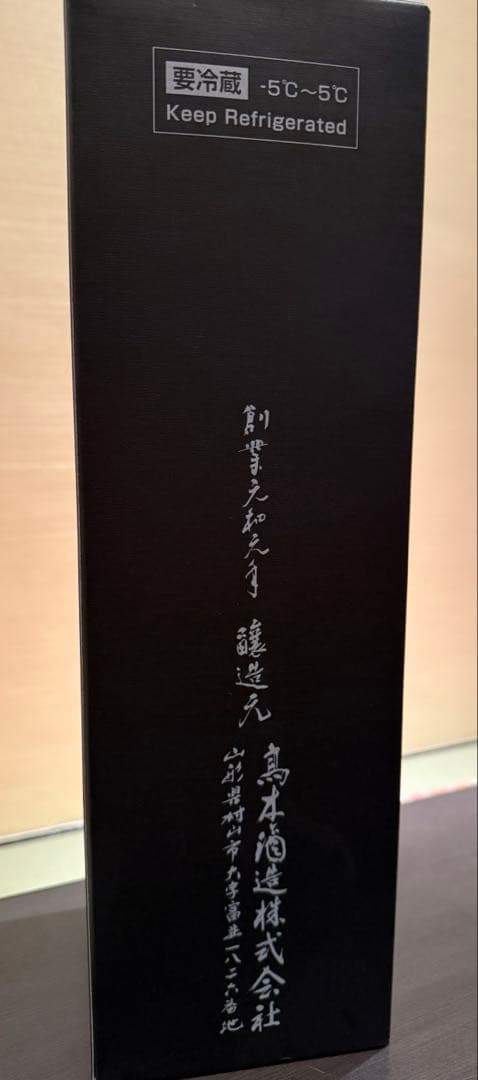 要冷蔵 -5℃～5℃
Keep Refrigerated
創業元和元年 醸造元
高木酒造株式会社
山形県村山市大字富並一八二六番地